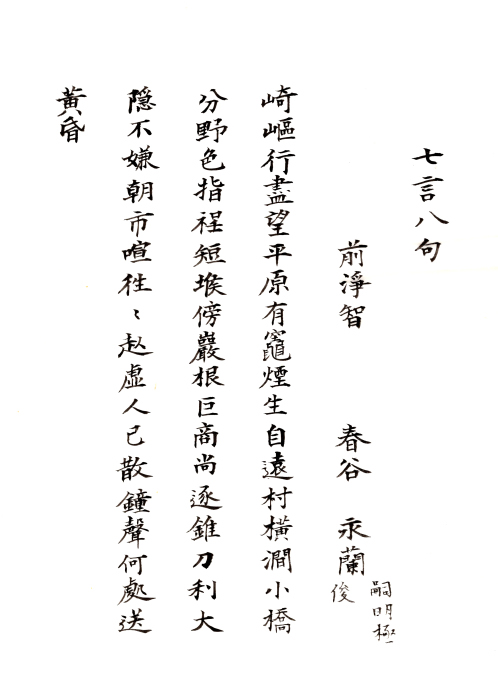 七言八句
前淨智　春谷　永蘭　嗣明極俊
崎嶇行盡望平原有竈煙生自遠村橫澗小橋
分野色指程短堠傍巖根巨商尚逐錐刀利大
隱不嫌朝市喧往〻赴虛人已散鐘聲何處送
黃昏